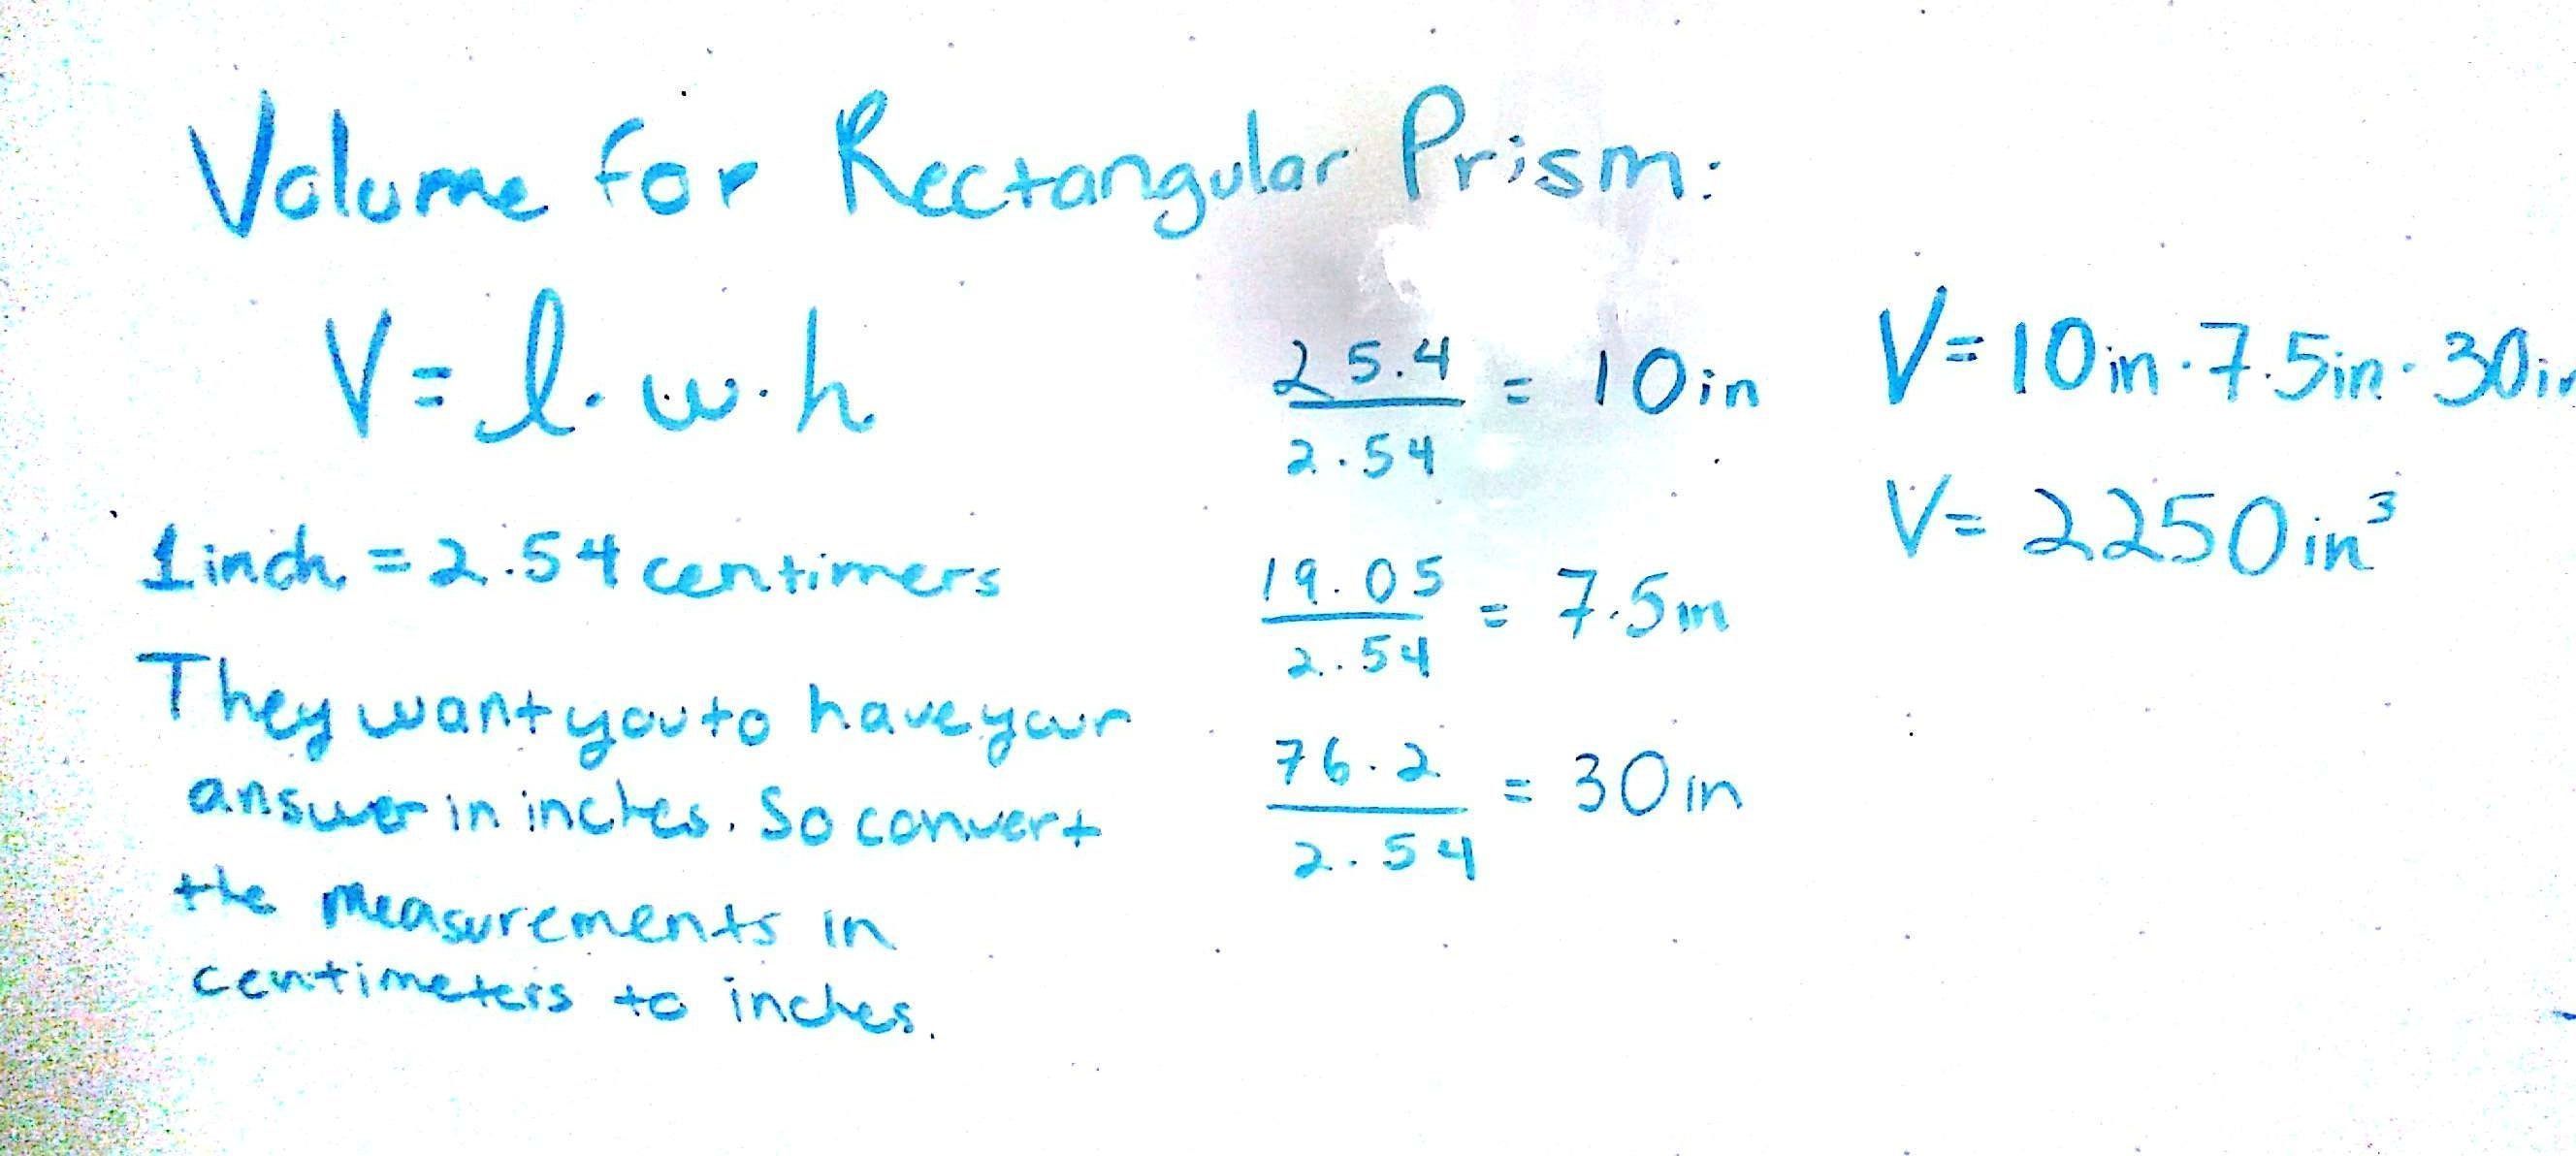 Volume for Rectangular Prism:
V = l · w · h
1 inch = 2.54 centimers
They want you to have your
answer in inches. So convert
the measurements in
centimeters to inches.
25.4 / 2.54 = 10in
19.05 / 2.54 = 7.5in
76.2 / 2.54 = 30in
V = 10in · 7.5in · 30in
V = 2250in³